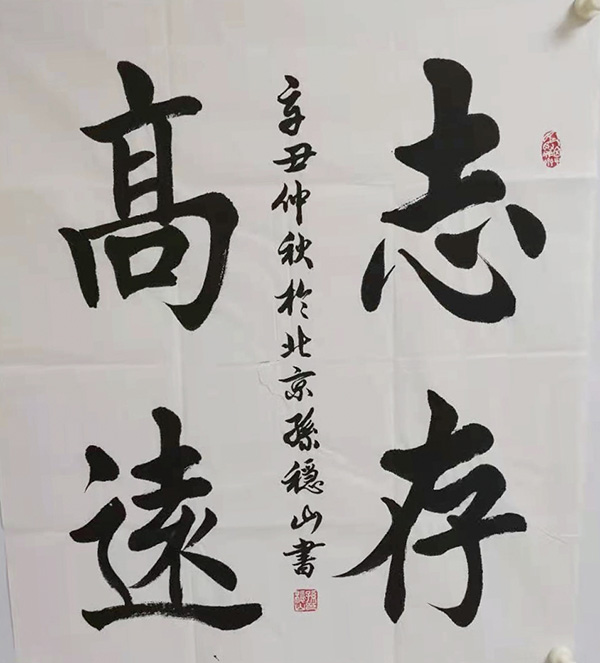 志存
高遠
辛丑仲秋於北京孫穩山書